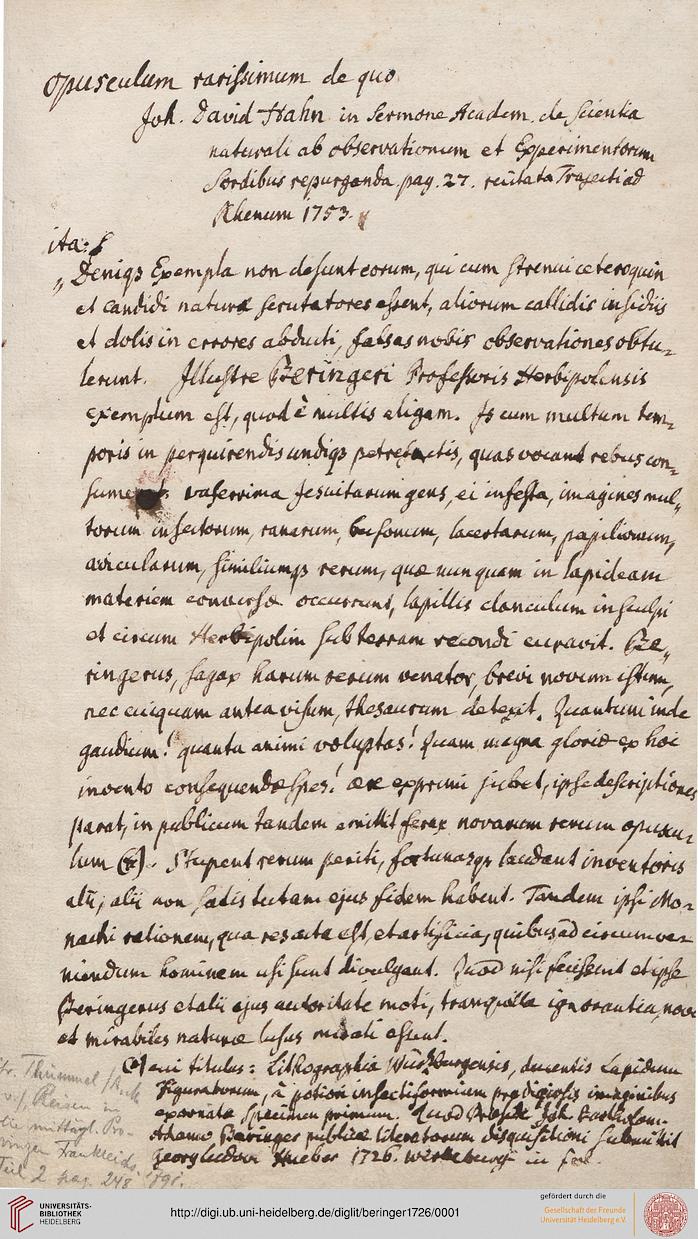 opusculum rarissimum de quo
Joh. David Hahn in Sermone Academ. de Scientia
naturali ab observationum et Experimentorum
Sordibus repurganda pag. 27. recitata Trajecti ad
Rhenum 1753.
ita:
„Deniqs Exempla non desunt eorum, qui cum strenui ceteroquin
et candidi naturæ scrutatores essent, aliorum callidis insidiis
et dolis in errores abducti, falsas nobis observationes obtu-
lerunt. Illustre Beringeri Professoris Herbipolensis
exemplum est, quod è multis eligam. Is cum multum tem-
poris in perquirendis undiqs petrefactis, quas vocant rebus con-
sumeret vaferrima Jesuitarum gens, ei infesta, imagines mul-
torum insectorum, ranarum, bufonum, lacertarum, papilionum,
avicularum, similiumqs rerum, quæ nunquam in lapideam
materiem conversæ occurrunt, lapillis clanculum insculpi
et circum Herbipolim sub terram recondi curavit. Be-
ringerus, sagax harum rerum venator, brevi novum istum,
nec cuiquam antea visum, thesaurum detexit. Quantum inde
gaudium! quanta animi voluptas! Quam magna gloriæ ex hoc
invento consequendæ spes! ære exprimi jubet, ipse descriptiones
parat, in publicum tandem emittit ferax novarum rerum opuscu-
lum (*). Stupent rerum periti, fortunasqs laudant inventoris
alii; alii non satis tutam ejus fidem habent. Tandem ipsi Mo-
nachi rationem, qua res acta est, et artificia, quibus ad circumve-
niendum hominem usi sunt divulgant. Quod nisi fecissent et ipse
Beringerus et alii ejus autoritate moti, tranquilla ignorantia, novos
et mirabiles naturæ lusus mirati essent.
(*) cui titulus: Lithographia Würzburgensis, ducentis Lapidum
Figuratorum, à potiori insectiformium prodigiosis imaginibus
exornata specimen primum. Quod Joh. Bartholom.
Adamo Beringer publicæ literatorum disquisitioni submittit
Georg Ludov Hueber 1726. in fol.
Thümmel
Reisen in
die mittägl. Pro-
vinzen Frankreichs.
Teil 2 pag. 248
UNIVERSITÄTS-
BIBLIOTHEK
HEIDELBERG
http://digi.ub.uni-heidelberg.de/diglit/beringer1726/0001
gefördert durch die
Gesellschaft der Freunde
Universität Heidelberg e.V.